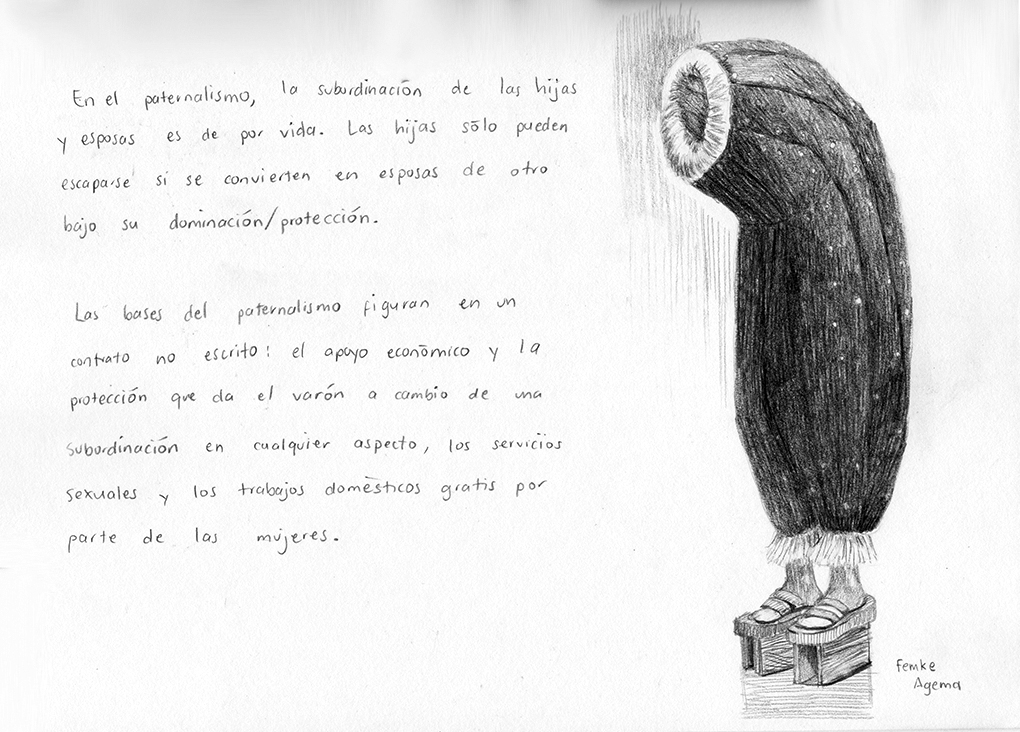 En el paternalismo, la subordinación de las hijas
y esposas es de por vida. Las hijas sólo pueden
escaparse si se convierten en esposas de otro
bajo su dominación/protección.
Las bases del paternalismo figuran en un
contrato no escrito: el apoyo económico y la
protección que da el varón a cambio de una
subordinación en cualquier aspecto, los servicios
sexuales y los trabajos domésticos gratis por
parte de las mujeres.
Femke
Agema